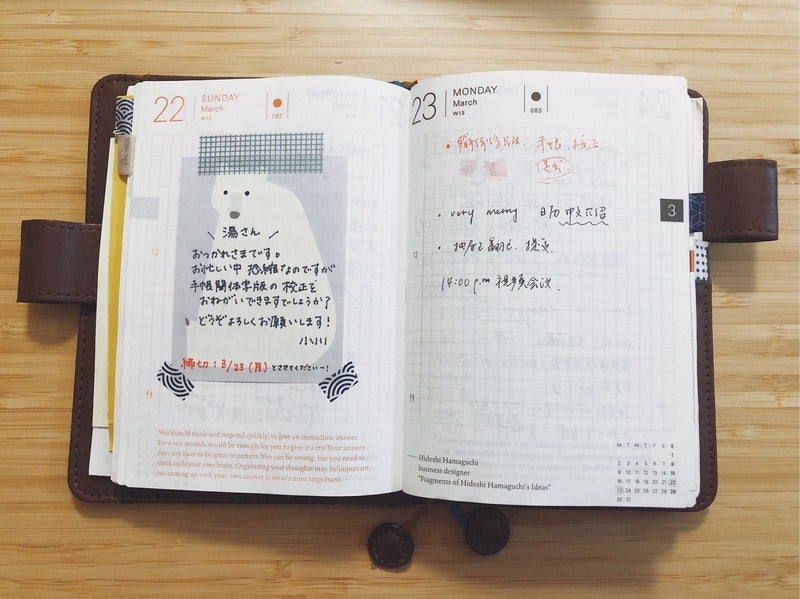 22
SUNDAY
March
W12
082
湯さん
おつかれさまです。
お忙しい中 恐縮なのですが
手帳簡体字版の 校正を
おねがいできますでしょうか？
どうぞよろしくお願いします！
小川
締切：3/23（月）とさせてくださいー！
You should think and respond quickly, to give an immediate answer.
Even ten seconds would be enough for you to give it a try. Your answer
does not have to be great or correct. You can be wrong, but you need to
think with your own brain. Organizing your thoughts may be important,
but coming up with your own answer is what's most important.
23
MONDAY
March
W13
083
手帐 校正
• very merry 日历 中文介绍
14:00 p.m 视频会议
3
12
Hideshi Hamaguchi
business designer
"Fragments of Hideshi Hamaguchi's Ideas"
M T W T F S S
1
2 3 4 5 6 7 8
9 10 11 12 13 14 15
16 17 18 19 20 21 22
23 24 25 26 27 28 29
30 31